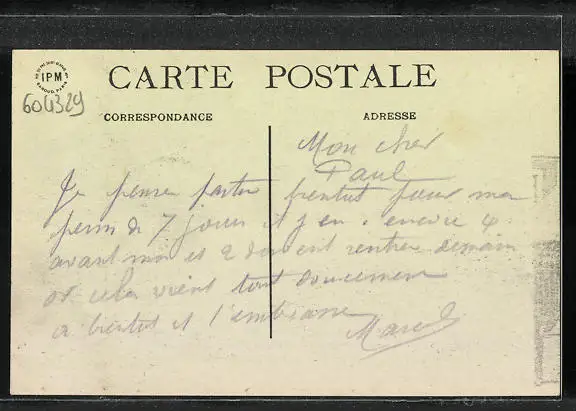 IPM
604329
CARTE POSTALE
CORRESPONDANCE
ADRESSE
Mon cher
Paul
Je pense partir bientot pour ma
perm de 7 jours il y en a encore 4
avant moi et 2 doivent rentrer demain
et cela vient tout doucement
a bientot et t'embrasse
Marcel